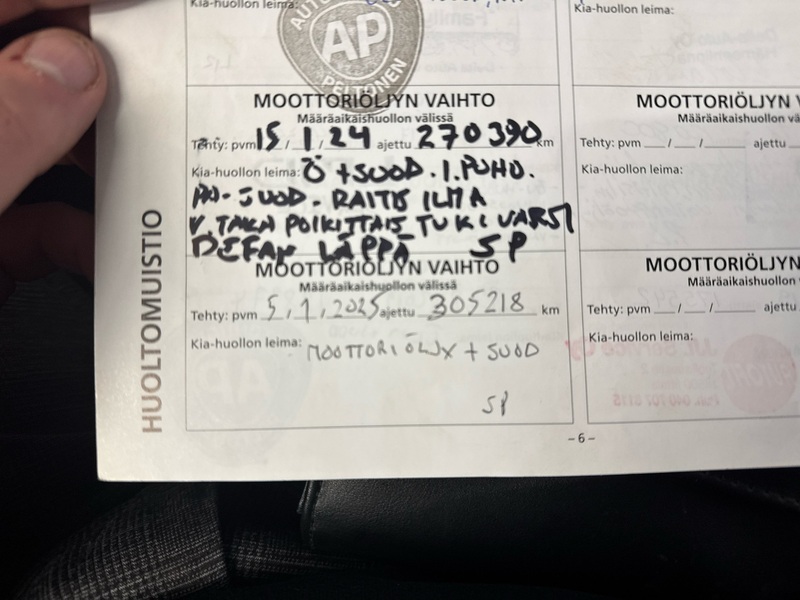 Kia-huollon leima:
AUTO
AP
PELTONEN
Kia-huollon leima:
MOOTTORIÖLJYN VAIHTO
Määräaikaishuollon välissä
Tehty: pvm 15 / 1 / 24 ajettu 270 390 km
Kia-huollon leima: Ö + SUOD. I. PUHD.
PO- SUOD. RAITIS ILMA
V. TAKA POIKITTAIS TUKIVARSI
DEFAN LÄPPÄ SP
MOOTTORIÖLJYN VAIHTO
Määräaikaishuollon välissä
Tehty: pvm 5 / 1 / 2025 ajettu 305218 km
Kia-huollon leima: MOOTTORIÖLJY + SUOD
SP
MOOTTORIÖLJYN V
Määräaika
Tehty: pvm __ / __ / ____ ajettu
Kia-huollon leima:
MOOTTORIÖLJYN
Määräaikaishuollon
Tehty: pvm __ / __ / ____ ajettu
Kia-huollon leima:
HUOLTOMUISTIO
– 6 –